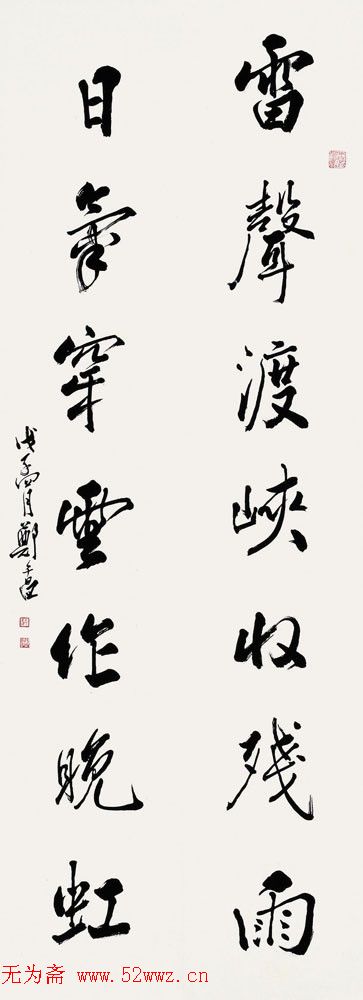 雷聲渡峽收殘雨
日氣穿雲作晚虹
戊子月鄭午昌
无为斋 www.52wwz.cn